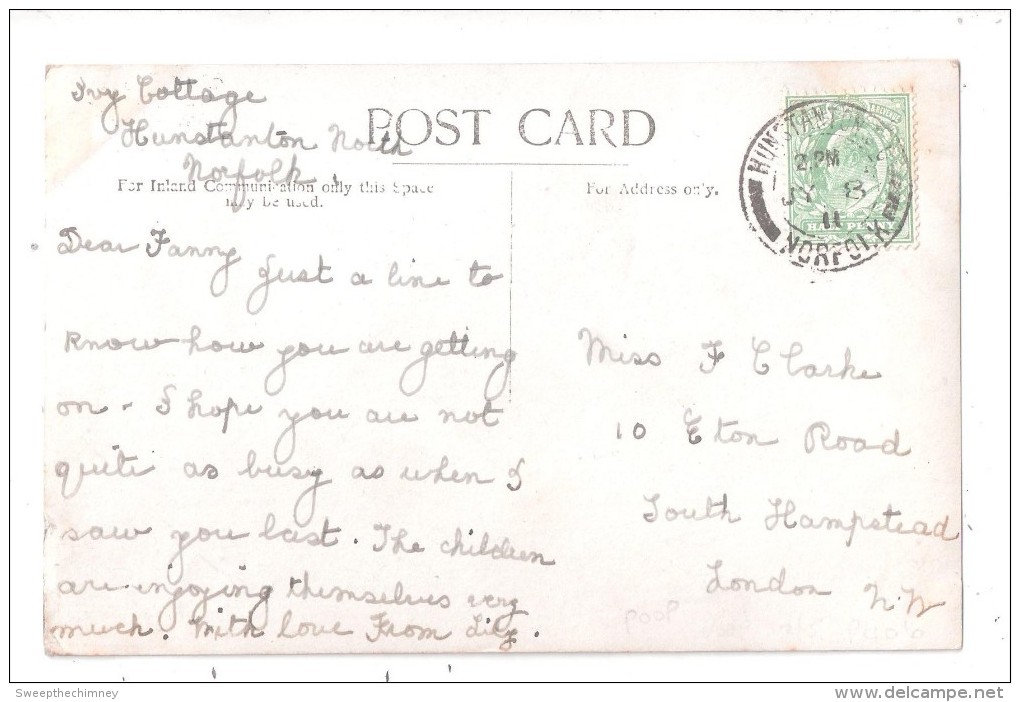 Ivy Cottage
Hunstanton North
Norfolk.
POST CARD
For Inland Communication only this Space
may be used.
For Address only.
HUNSTANTON
2.PM
JY 8
11
NORFOLK
HALF PENNY
Dear Fanny
Just a line to
know how you are getting
on - I hope you are not
quite as busy as when I
saw you last. The children
are enjoying themselves very
much. With love From Liz.
Miss F Clarke
10 Eton Road
South Hampstead
London N.W
Sweepthechimney
www.delcampe.net